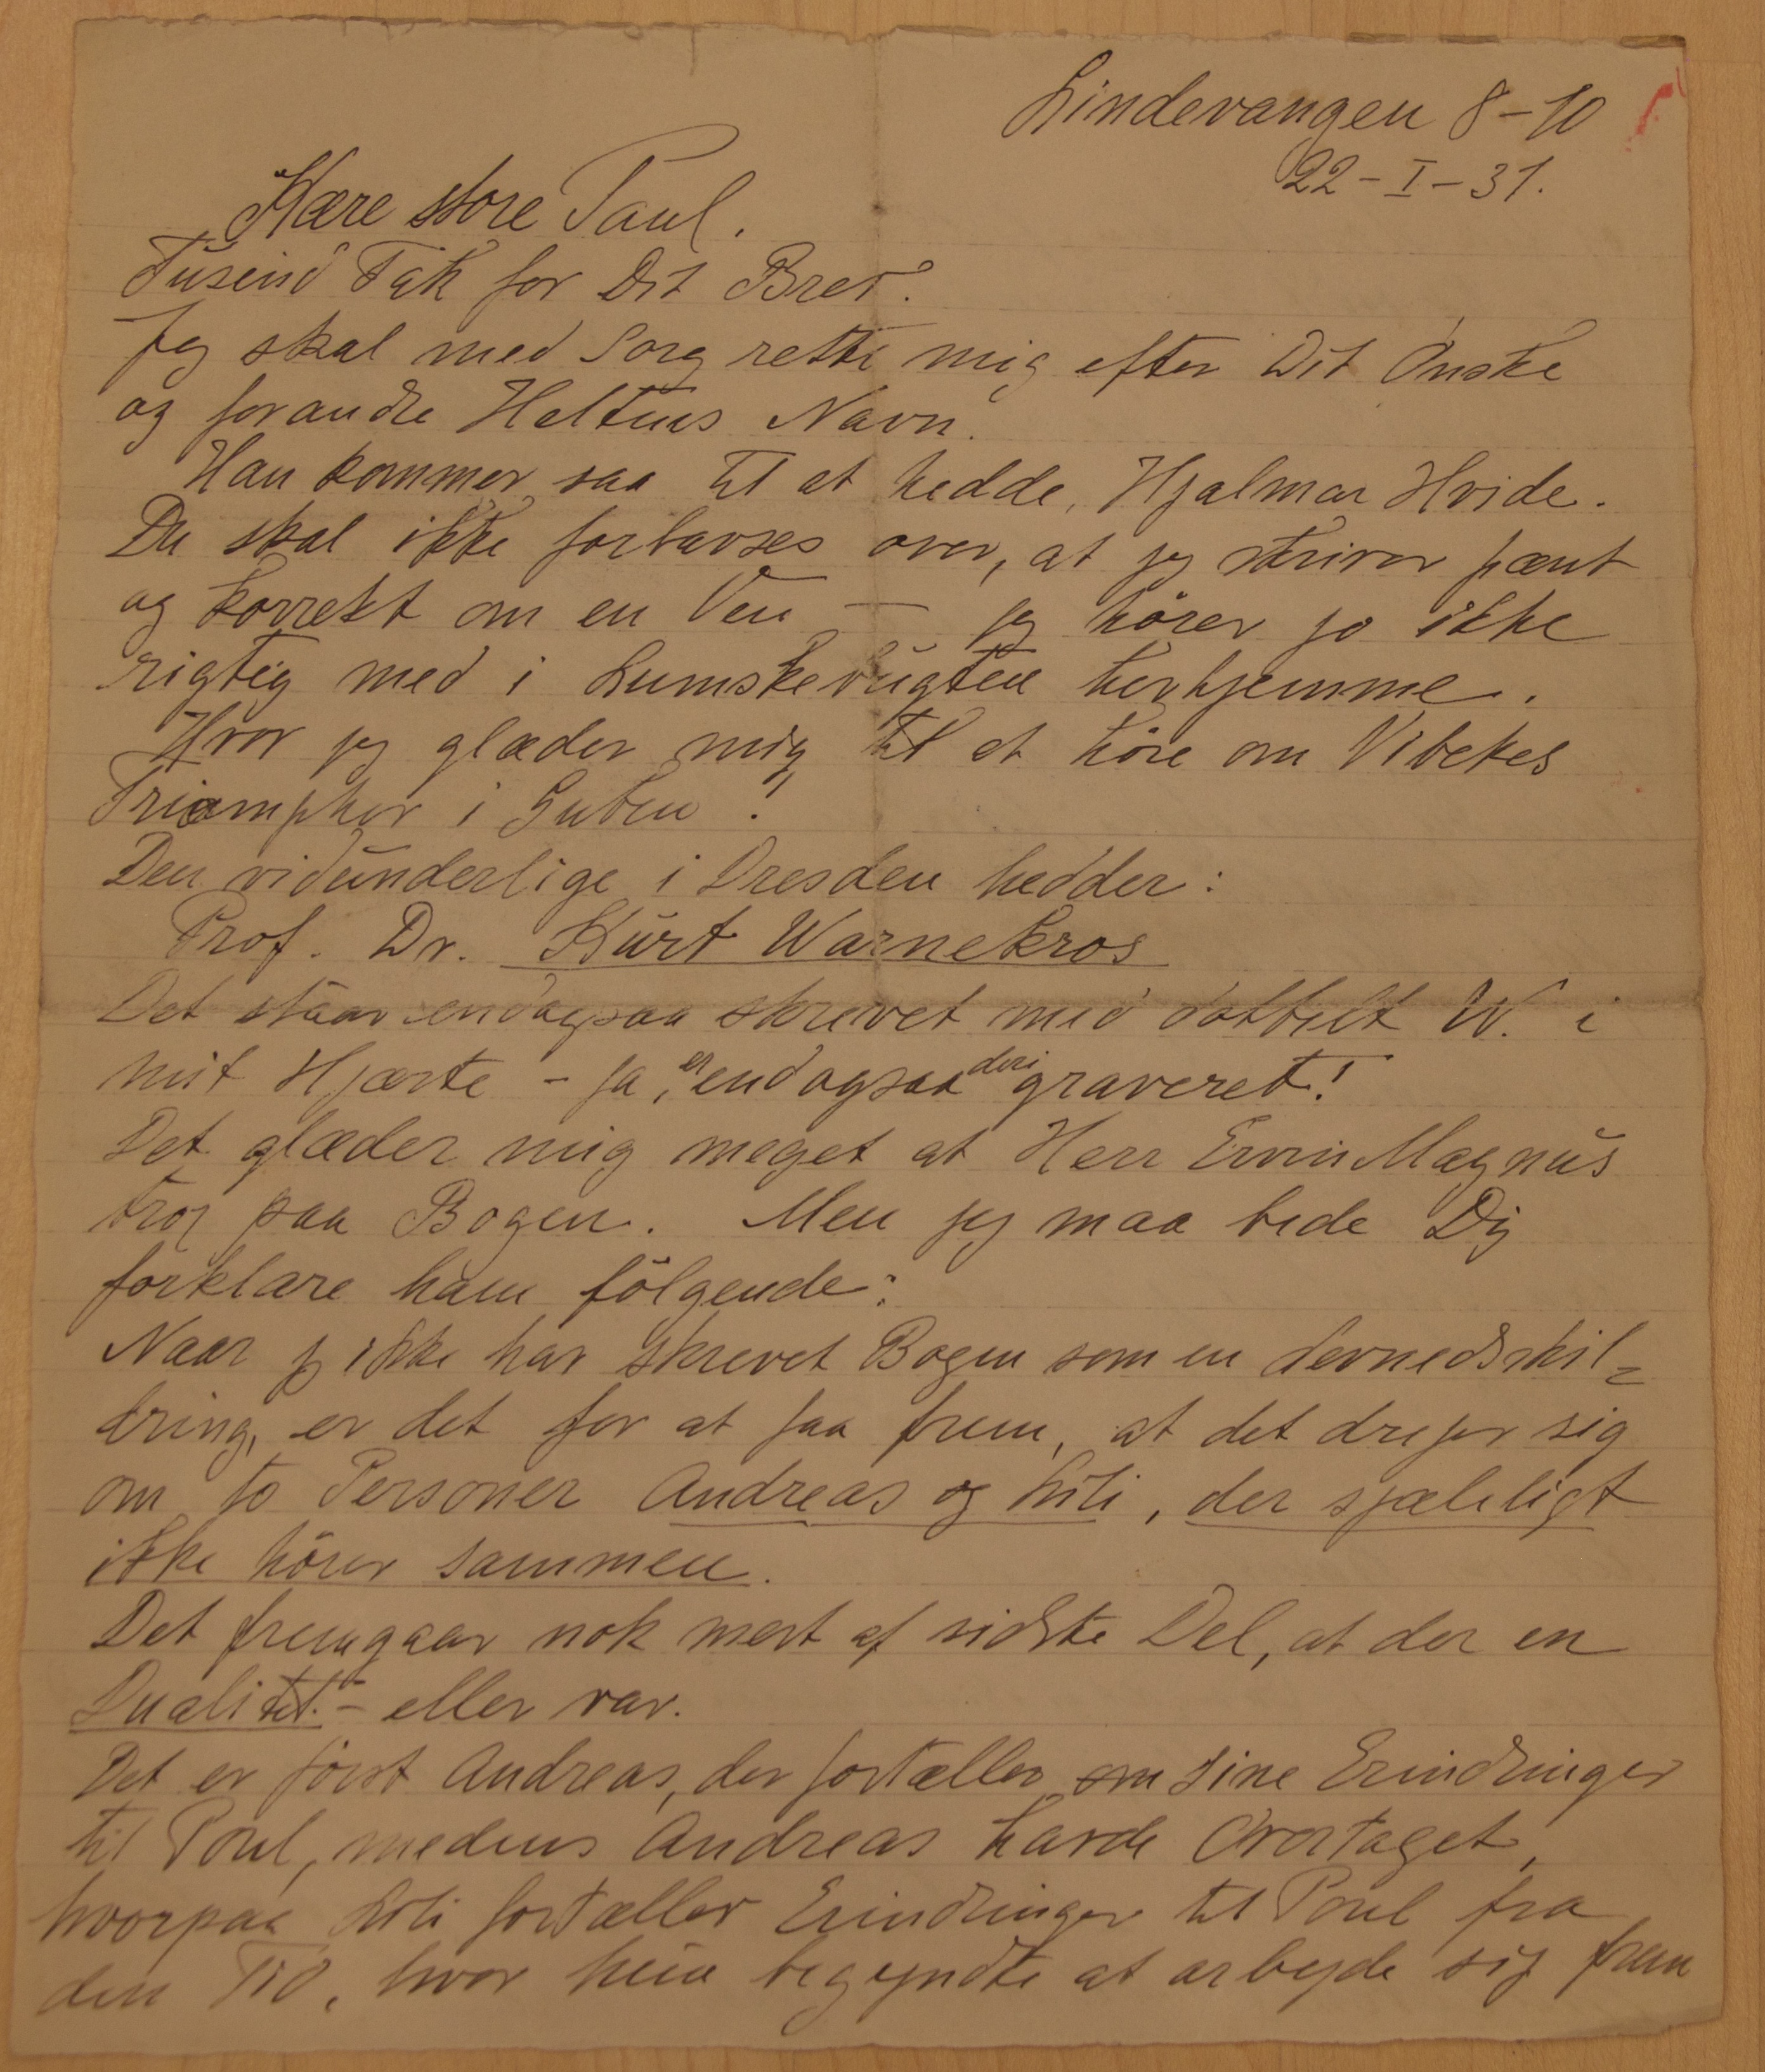 Lindevangen 8-10
22-I-31.
Kære store Paul.
Tusind Tak for Dit Brev.
Jeg skal med Sorg rette mig efter Dit Ønske
og forandre Heltens Navn.
Han kommer saa til at hedde, Hjalmar Hvide.
Du skal ikke forbavses over, at jeg skriver pænt
og korrekt om en Ven — jeg hører jo ikke
rigtig med i Lumskebugten herhjemme.
Hvor jeg glæder mig til at høre om Vibekes
Triompher i Guben!
Den vidunderlige i Dresden hedder:
Prof. Dr. Kurt Warnekros
Det staar endogsaa skrevet med dobbelt W. i
mit Hjærte - ja, er endogsaa deri graveret!
Det glæder mig meget at Herr Ervin Magnus
troj paa Bogen. Men jeg maa bede Dig
forklare ham følgende:
Naar jeg ikke har skrevet Bogen som en Levnedsskil=
dring, er det for at faa frem, at det drejer sig
om to Personer Andreas og Lili, der sjæleligt
ikke hører sammen.
Det fremgaar nok mest af sidste Del, at der en
Dualitet - eller var.
Det er først Andreas, der fortæller om sine Erindringer
til Poul, medens Andreas havde Overtaget,
hvorpaa Lili fortæller Erindringer til Poul fra
den Tid, hvor hun begyndte at arbejde sig frem